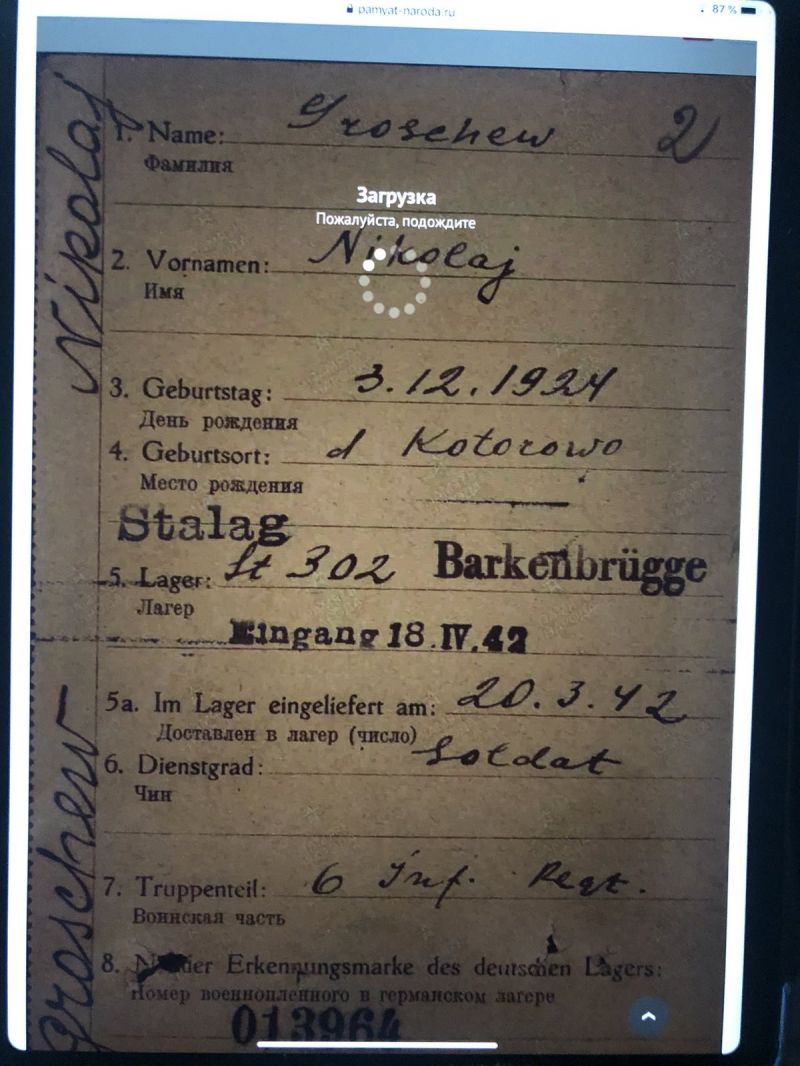 pamyat-naroda.ru
87 %
1. Name: Groschew 2
Фамилия
Загрузка
Пожалуйста, подождите
2. Vornamen: Nikolaj
Имя
3. Geburtstag: 3.12.1924
День рождения
4. Geburtsort: d Kotorowo
Место рождения
Stalag
5. Lager: St 302 Barkenbrügge
Лагер
Eingang 18.IV.42
5a. Im Lager eingeliefert am: 20.3.42
Доставлен в лагер (число)
6. Dienstgrad: Soldat
Чин
7. Truppenteil: 6 Inf. Regt.
Воинская часть
8. der Erkennungsmarke des deutschen Lagers:
Номер военнопленного в германском лагере
013964
Groschew Nikolaj